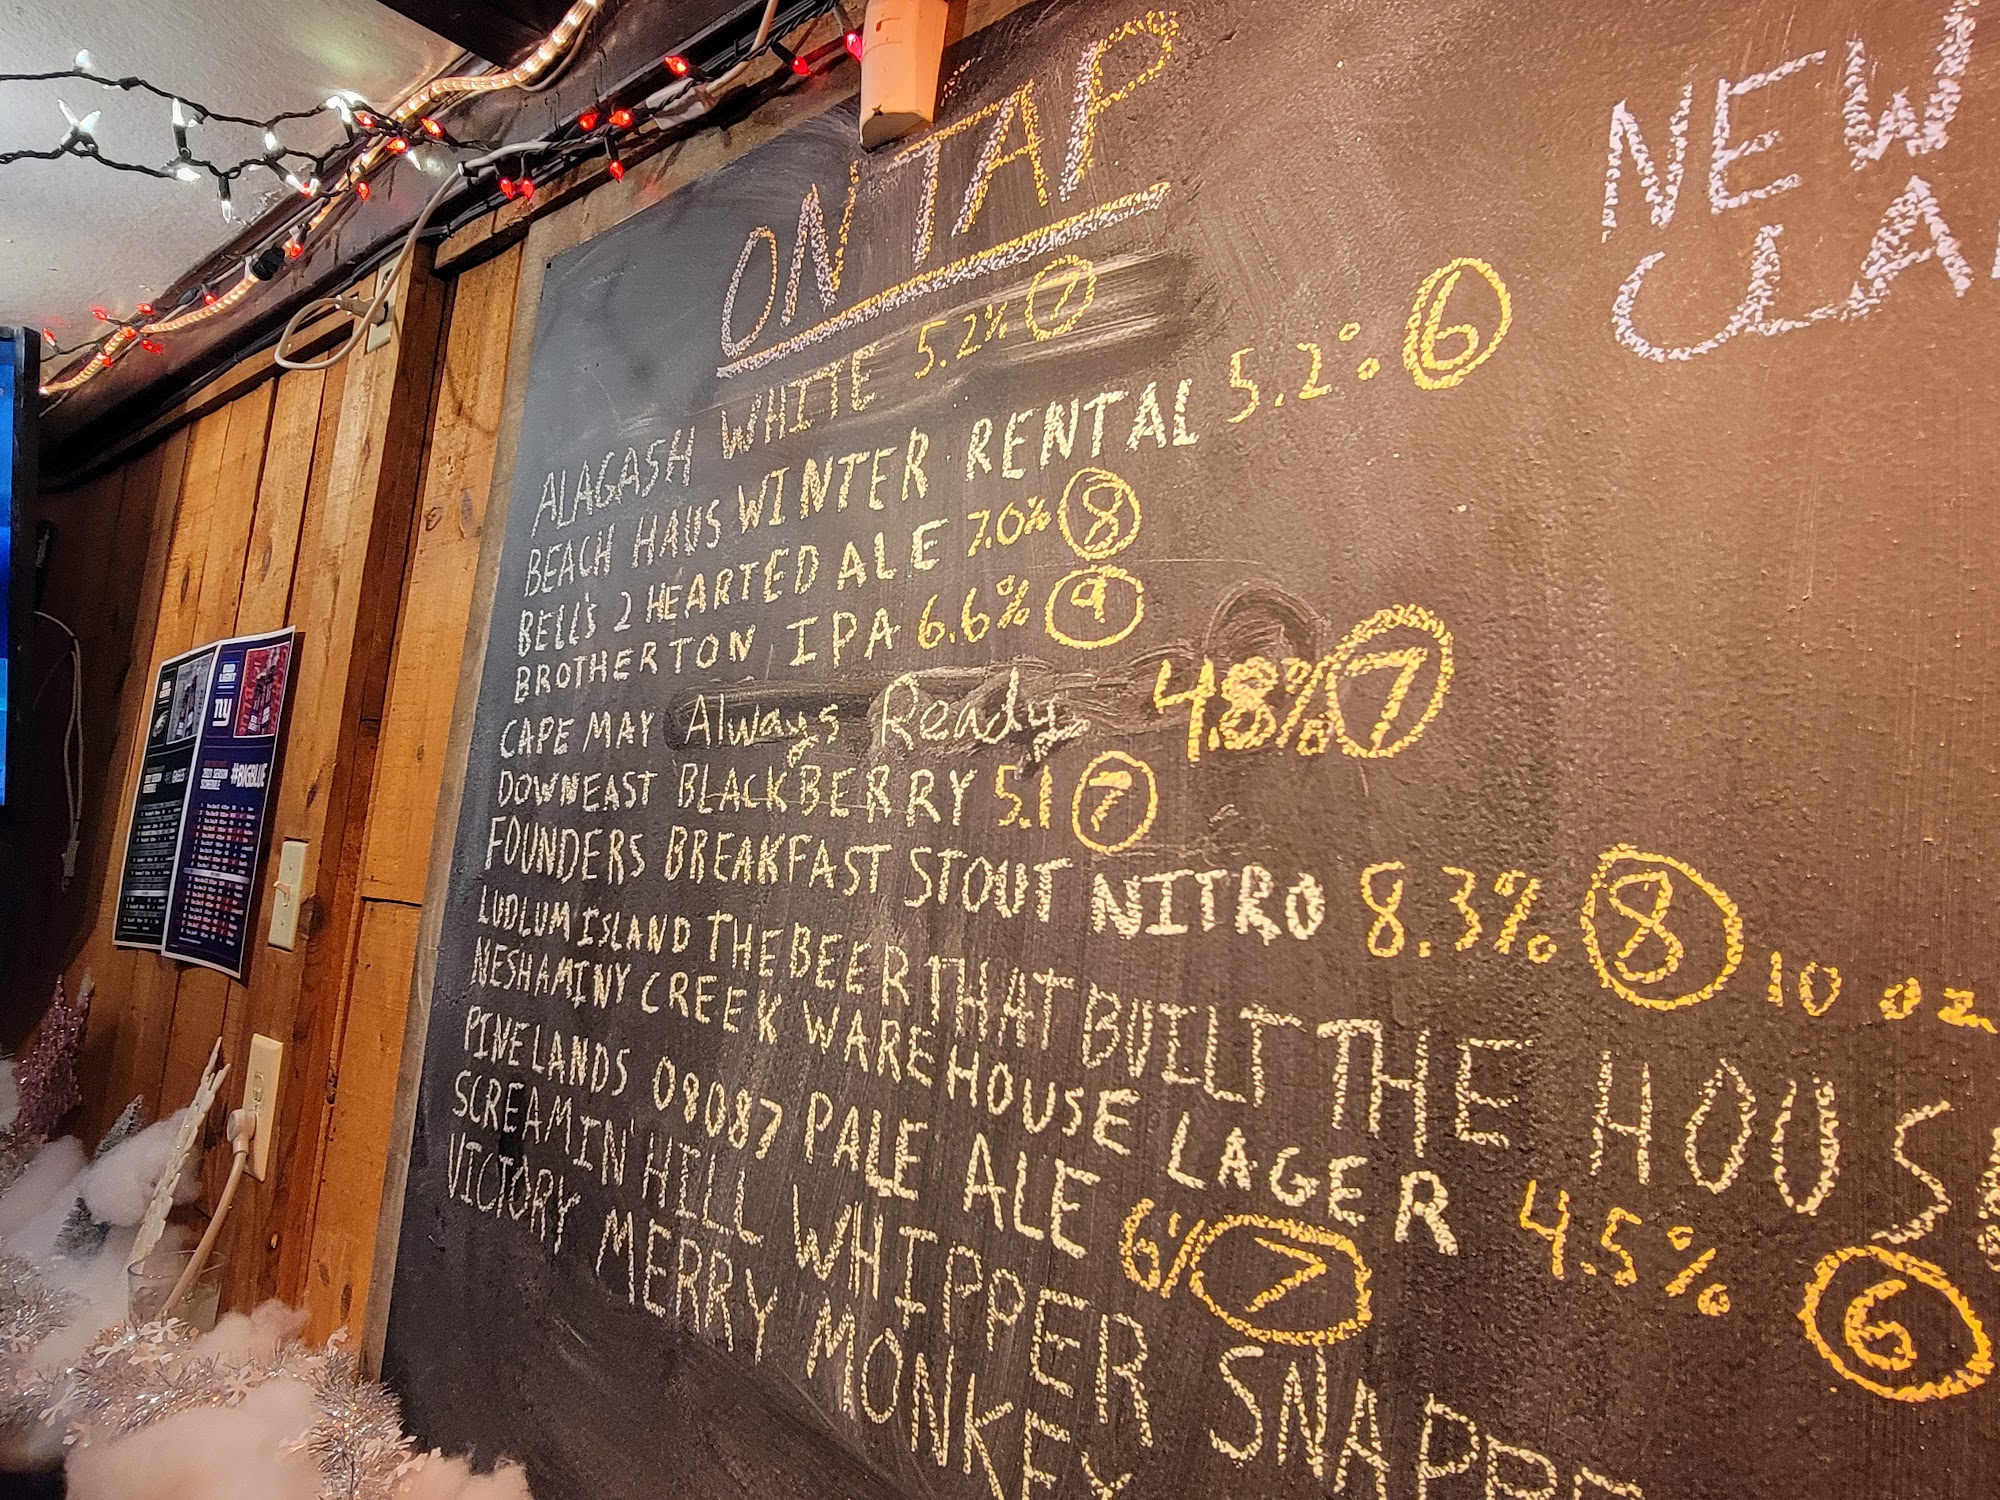 ON TAP
ALAGASH WHITE 5.2% 7
BEACH HAUS WINTER RENTAL 5.2% 6
BELL'S 2 HEARTED ALE 7.0% 8
BROTHERTON IPA 6.6% 9
CAPE MAY Always Ready 4.8% 7
DOWNEAST BLACKBERRY 5.1 7
FOUNDERS BREAKFAST STOUT NITRO 8.3% 8 10 oz
LUDLUM ISLAND THE BEER THAT BUILT THE HOUSE
NESHAMINY CREEK WAREHOUSE LAGER 4.5% 6
PINELANDS 08087 PALE ALE 6% 7
SCREAMIN' HILL WHIPPER SNAPPE
VICTORY MERRY MONKEY
NEW
CLA
BUD
LIGHT
ny
2023 SEASON
SCHEDULE
#BIGBLUE